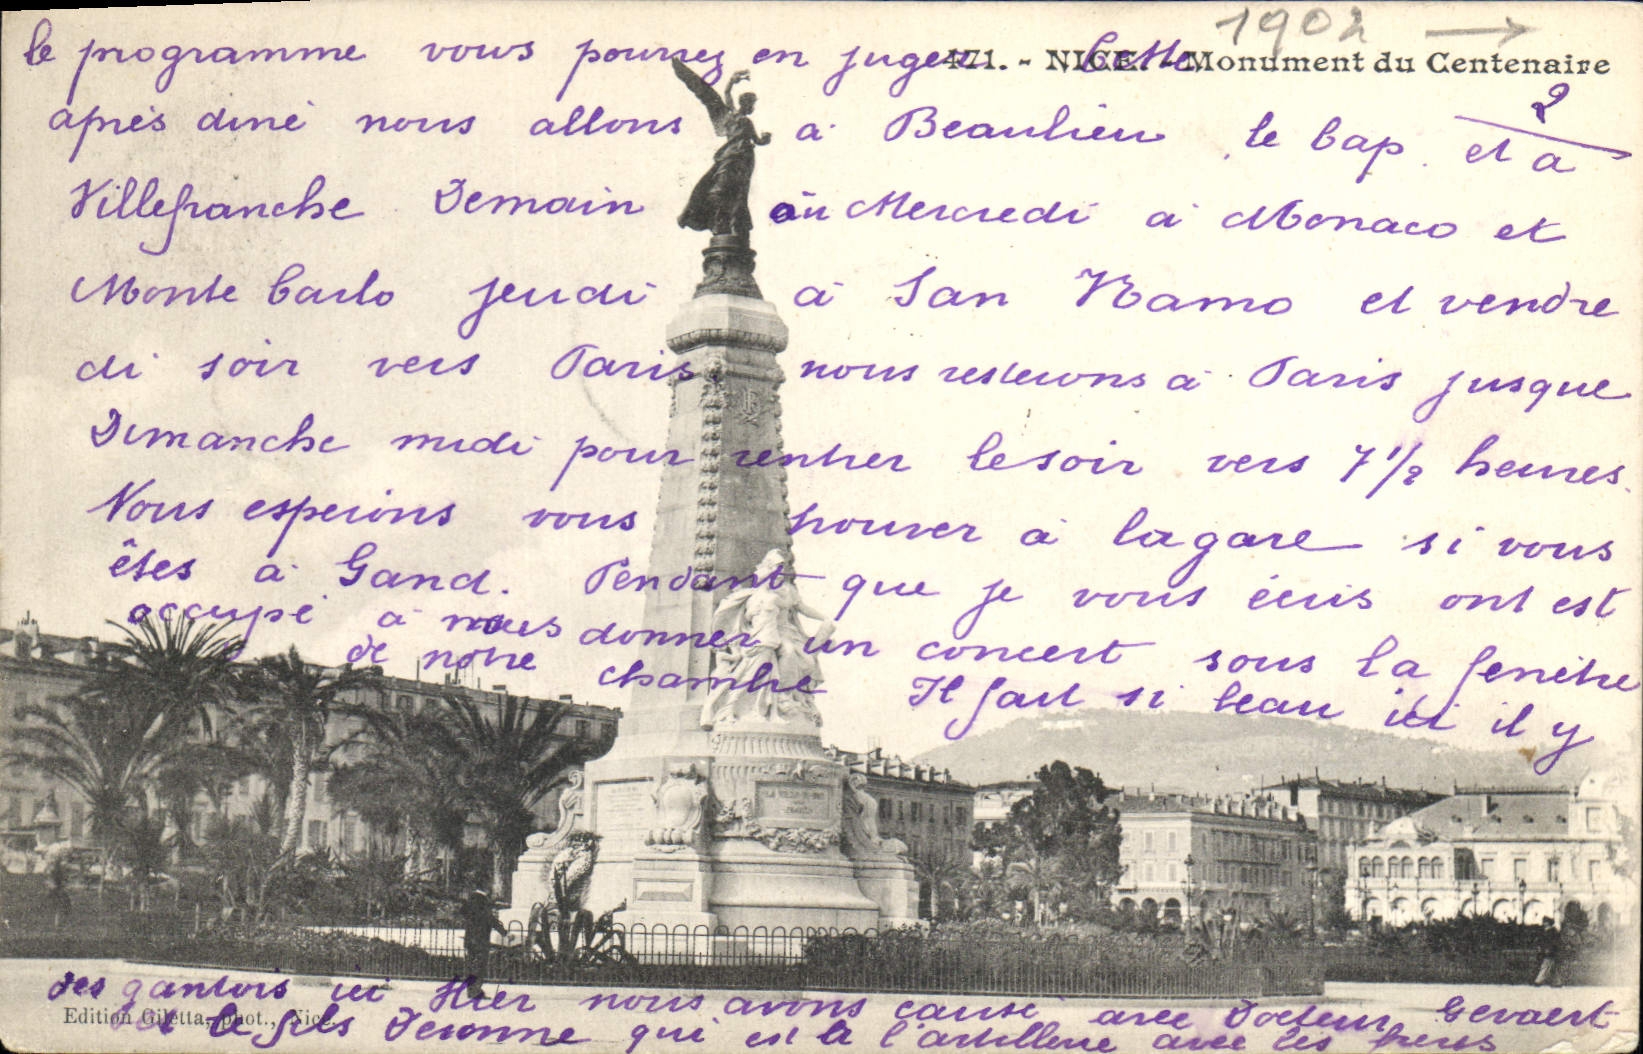 1902 →
471. - NICE. - Monument du Centenaire
2
le programme vous pourrez en juger Cette
après diné nous allons à Beaulieu, le Cap. et à
Villefranche. Demain ou Mercredi à Monaco et
Monte Carlo jeudi à San Ramo et vendre
di soir vers Paris. nous resterons à Paris jusque
Dimanche midi pour rentrer le soir vers 7 1/2 heures.
Nous esperons vous trouver à la gare si vous
êtes à Gand. Pendant que je vous écris ont est
occupé à nous donner un concert sous la fenêtre
de notre chambre Il fait si beau ici il y
des gantois ici Hier nous avons causé avec Docteur Gevaert
et le fils Deronne qui est là l'artillerie avec les freres
Edition Giletta, phot., Nice.